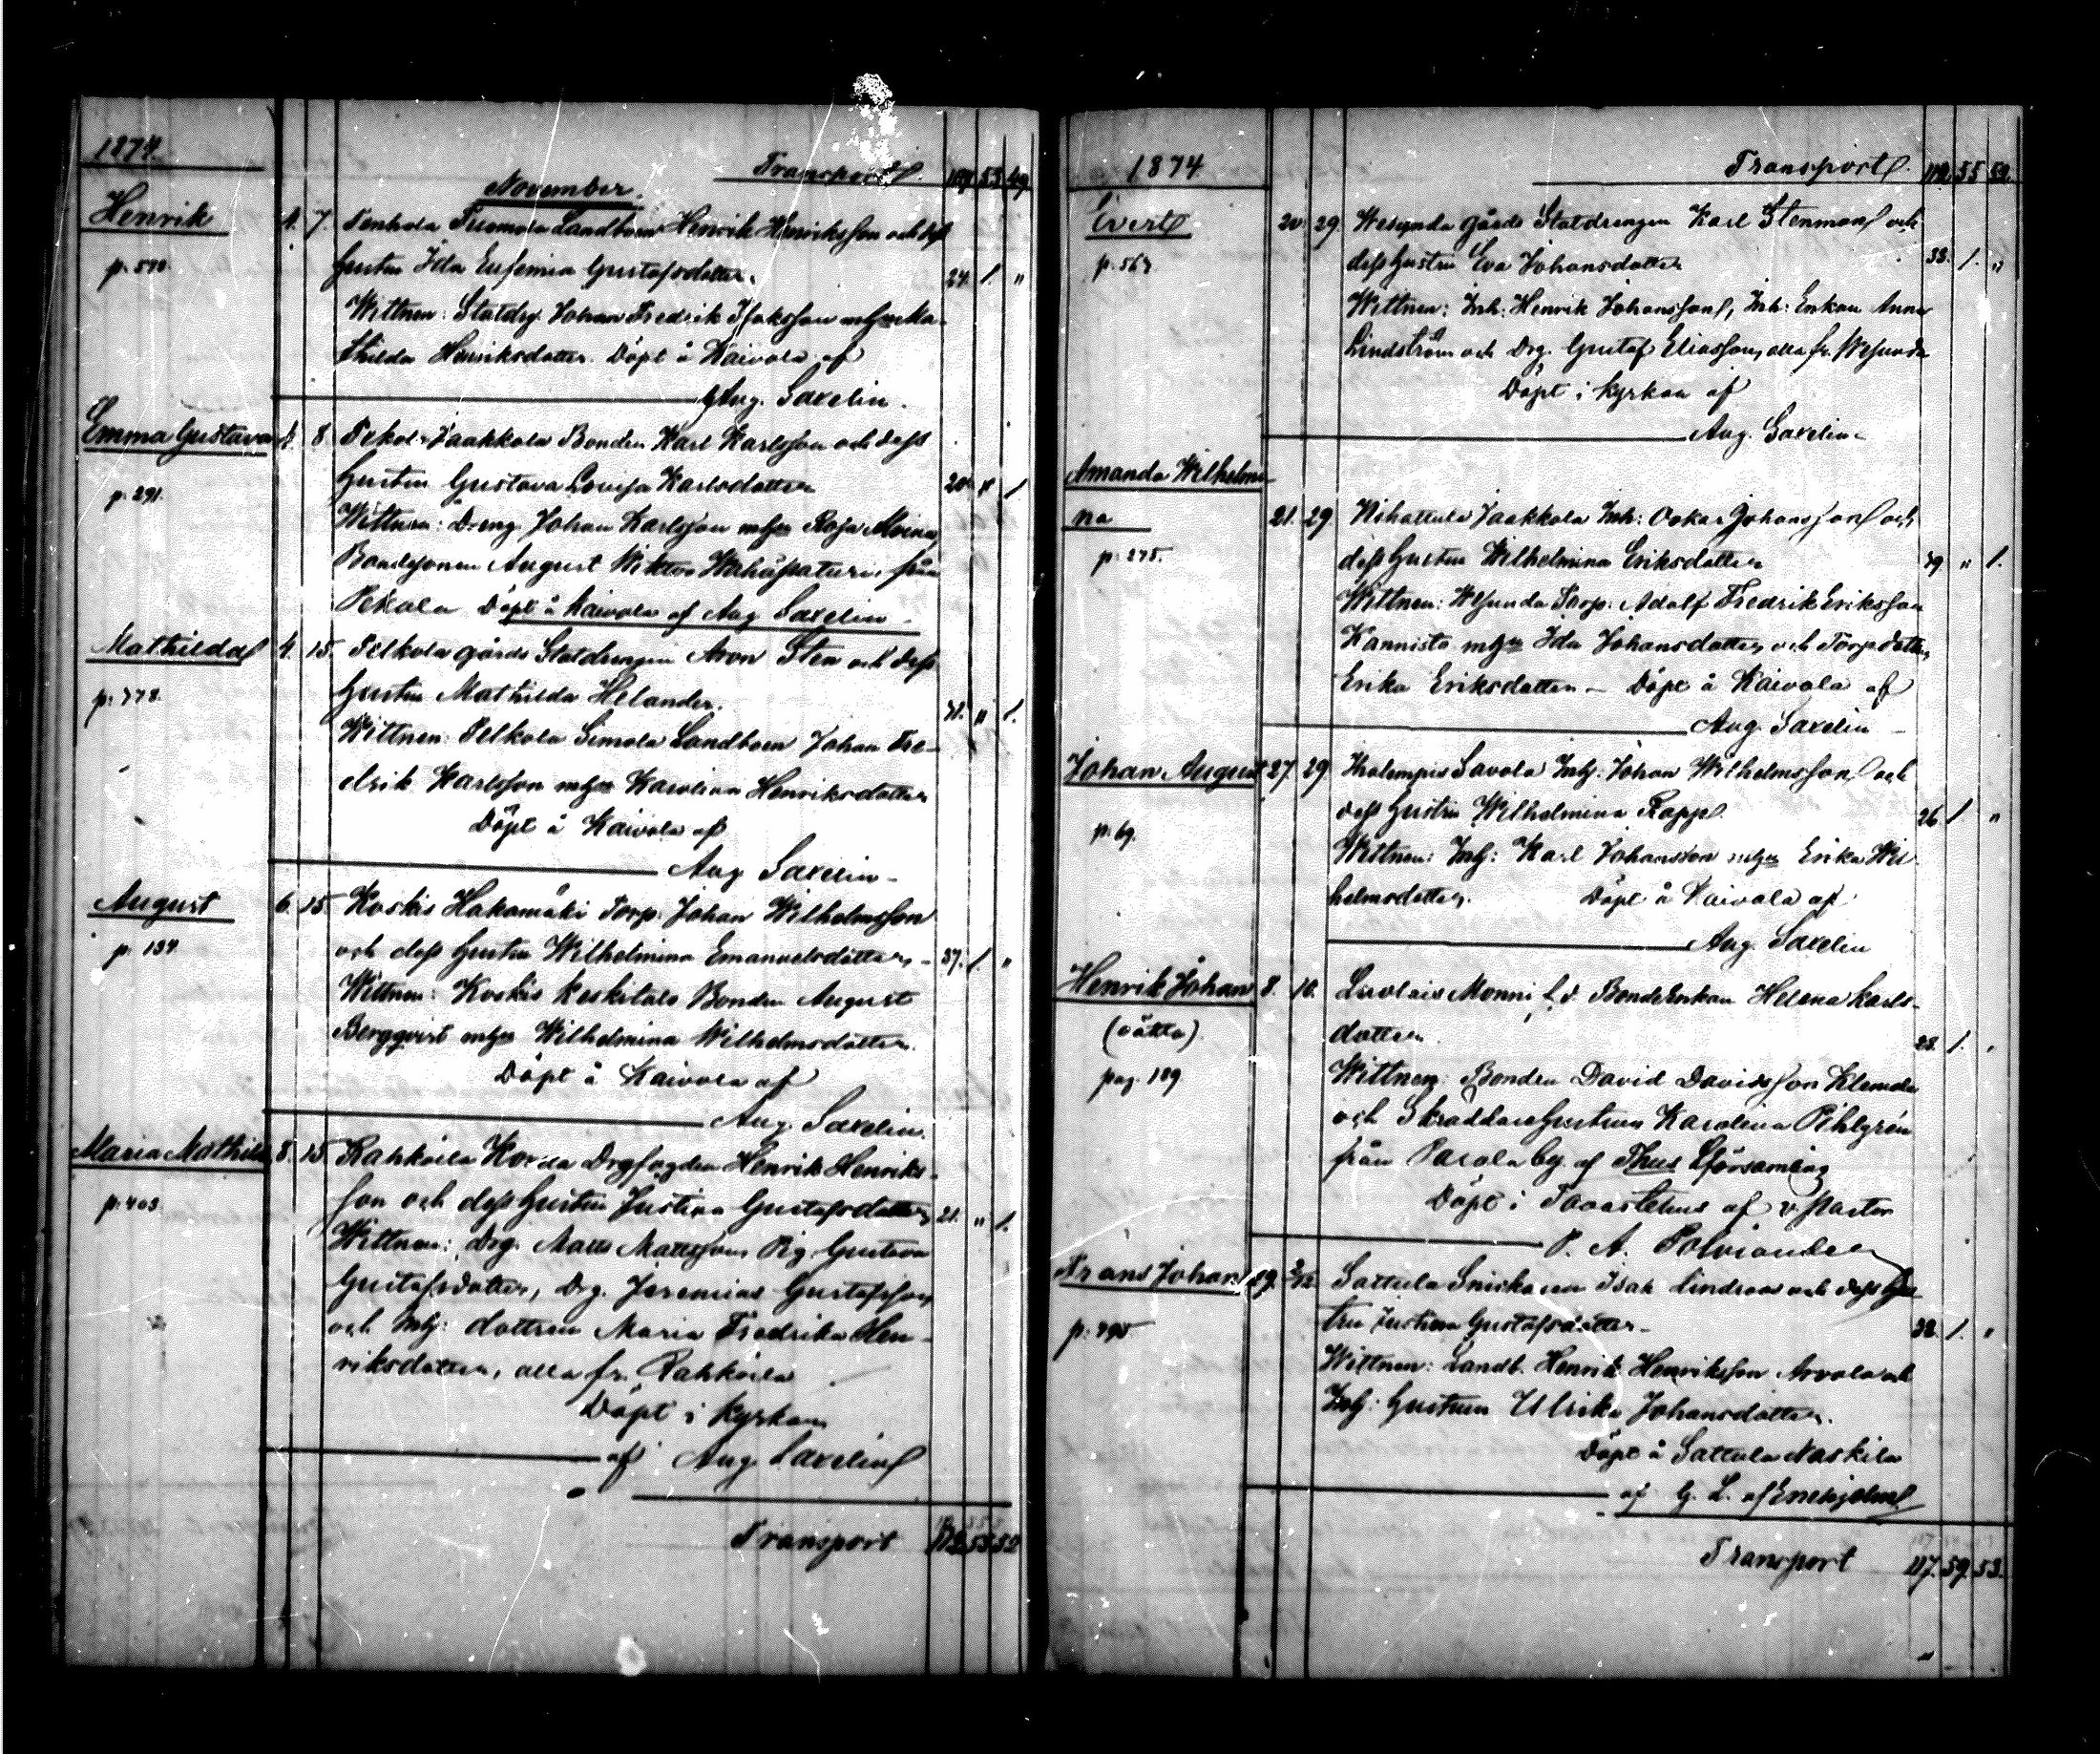 1874.
Transport 53 49
November.
Henrik 4. 7. Tenhola Landboen Henrik Henriksson och dess
hustru Ida Eufemia Gustafsdotter. 24. 1. "
Wittnen: Statdrg Johan Fredrik Isaksson m hu Ma-
thilda Henriksdotter. Döpt å Kaivola af
Aug. Saxelin.
Emma Gustava 8 Jaakkola Bonden Karl Karlsson och dess
p. 291. hustru Gustava Lovisa Karlsdotter 20. " 1
Wittnen: Dreng Johan Karlsson m hu Rosa
Bondesonen August från
Pekola Döpt å Kaivola af Aug Saxelin
Mathilda 4. 15. Pelkola gårds Statdrengen Aron Sten och dess
hustru Mathilda Helander. " 1.
Wittnen: Pelkola Simola Landboen Johan Fre-
drik Karlsson m hu Karolina Henriksdotter
Döpt å Kaivola af
Aug Saxelin
August 6. 15. Koskis Hakamäki Torp. Johan Wilhelmsson
p. 134 och dess hustru Wilhelmina Emanuelsdotter, 37. 1. "
Wittnen: Koskis Keskitalo Bonden August
Bergqvist m hu Wilhelmina Wilhelmsdotter.
Döpt å Kaivola af
Aug. Saxelin.
Maria Mathild 8. 15 Rahkoila Drgfogden Henrik Henriks-
p. 403 son och dess hustru Justina Gustafsdotter 21. " 1.
Wittnen: Drg. Matts Mattsson, Pig. Gustava
Gustafsdotter, Drg. Jeremias Gustafsson,
och Inh: dottren Maria Fredrika Hen-
riksdotter, alla fr. Rahkoila
Döpt i Kyrkan
af Aug Saxelin
Transport 112 55 52
1874
Transport 112. 55 52.
Evert 20. 29. Wesunda gårds Statdrengen Karl Stenman och
dess hustru Eva Johansdotter 33. 1. "
Wittnen: Inh: Henrik Johansson, Inh: Enkan Anna
Lindström och Drg. Gustaf Eliasson, alla fr. Wesunda
Döpt i Kyrkan af
Aug. Saxelin
Amanda Wilhelmi-
na 21. 29. Nihattula Jaakkola Inh: Oskar Johansson och
p. 275. dess hustru Wilhelmina Eriksdotter " 1.
Wittnen: Wesunda Torp. Adolf Fredrik Eriksson
Kannisto m hu Ida Johansdotter och Torpdottren
Erika Eriksdotter – Döpt å Kaivola af
Aug. Saxelin
Johan August 27 29 Ihalempis Savola Inh: Johan Wilhelmsson och
p. 69. dess hustru Wilhelmina Rapp 26 1 "
Wittnen: Inh: Karl Johansson m hu Erika Wil-
helmsdotter. Döpt å Kaivola af
Aug. Saxelin
Henrik Johan 8. 10. Monni f. d. BondeEnkan Helena Karls-
(oäkta) dotter 28. 1.
pag. 189 Wittnen: Bonden David Davidsson Klemola
och Skräddarehustrun Karolina Pihlgrén
från Parola by af Thus Lförsamling
Döpt i Tavastehus af v Pastor
P. A.
Frans Johan 19. 2/12 Sattula Isak Lindroos och dess hus-
tru Justina Gustafsdotter 32. 1. "
Wittnen: Landb. Henrik Henriksson Arvola och
Inh: hustrun Ulrika Johansdotter.
Döpt å Sattula Naskila
af G. L. af Enehjelm
Transport 117. 59. 53.